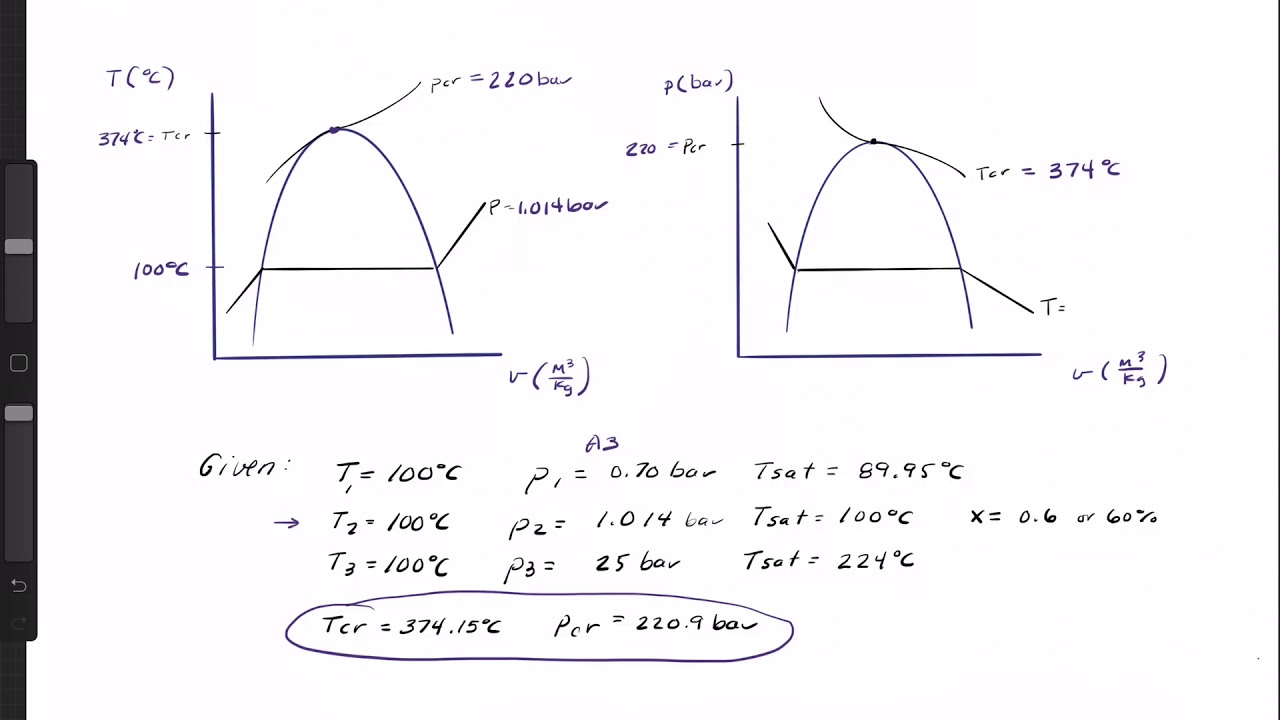 T(°C)
pcr = 220 bar
p(bar)
374°C = Tcr
220 = Pcr
Tcr = 374°C
P = 1.014 bar
100°C
T=
v (m³/kg)
v (m³/kg)
A3
Given: T₁ = 100°C p₁ = 0.70 bar Tsat = 89.95°C
→ T₂ = 100°C p₂ = 1.014 bar Tsat = 100°C x = 0.6 or 60%
T₃ = 100°C p₃ = 25 bar Tsat = 224°C
Tcr = 374.15°C Pcr = 220.9 bar